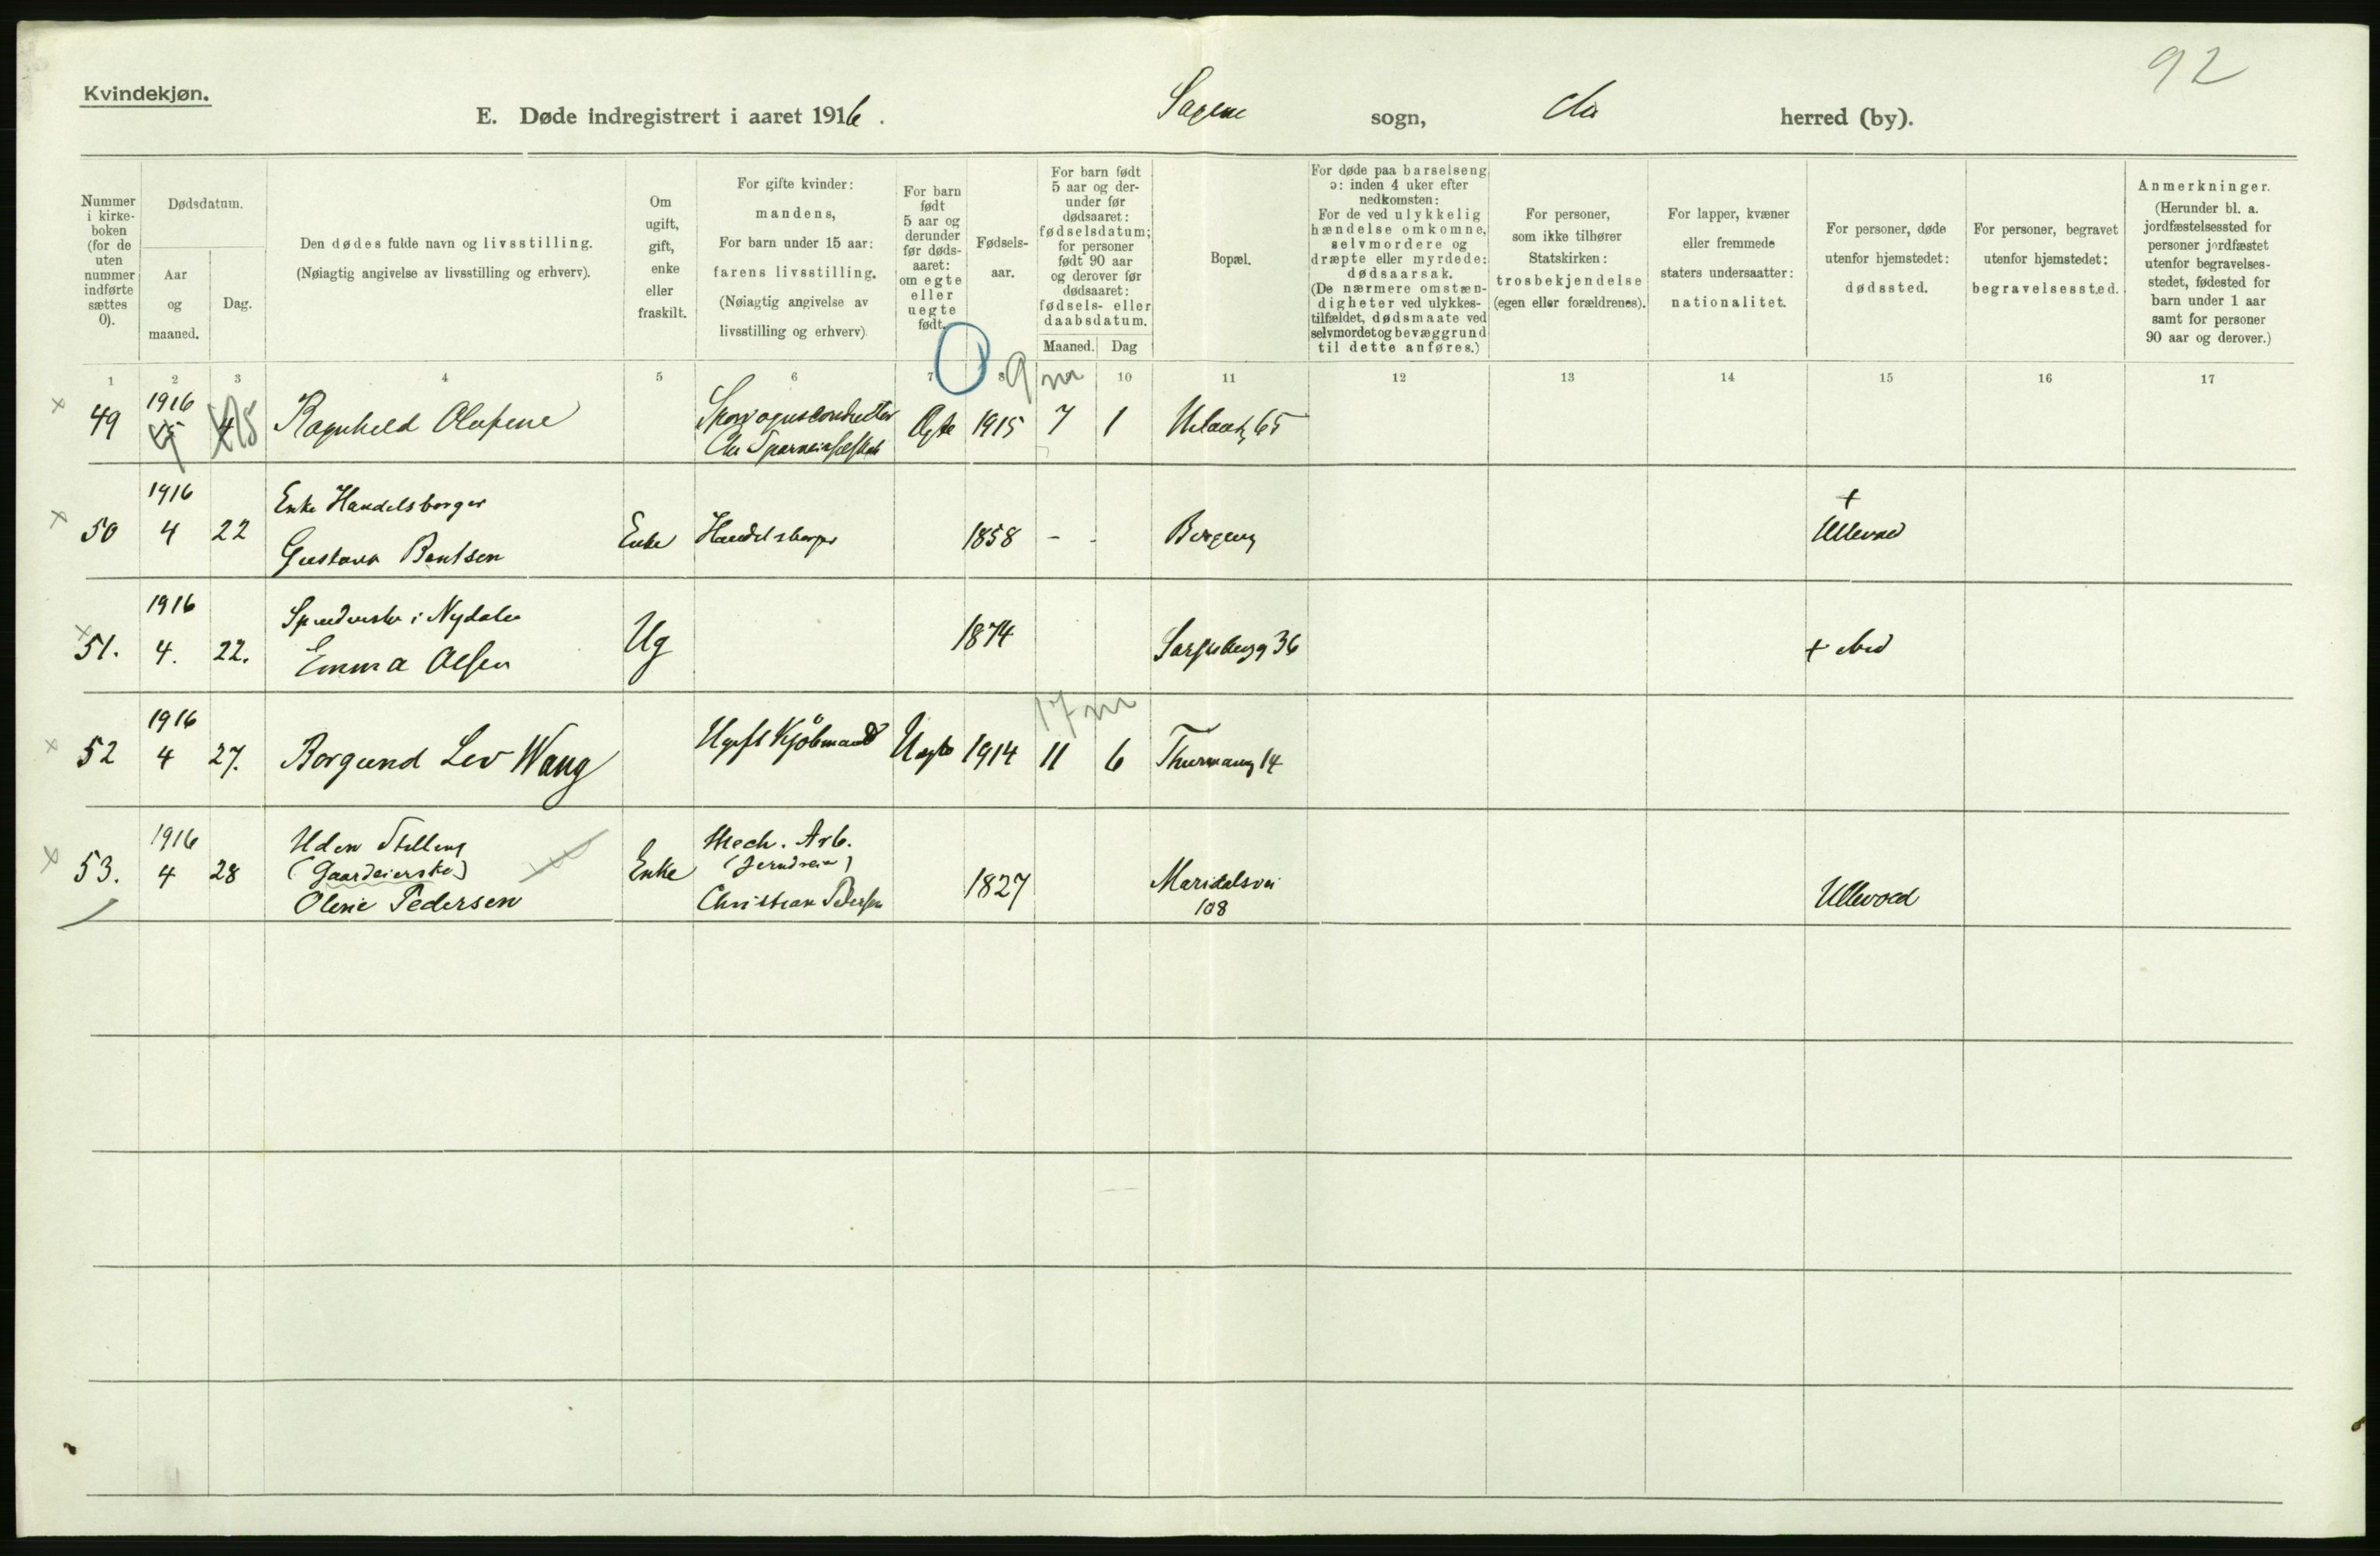 92
Kvindekjøn.
E. Døde indregistrert i aaret 1916. Sagene sogn, Chr herred (by).
Nummer i kirke-boken (for de uten nummer indførte sættes 0).
Dødsdatum.
Aar og maaned.
Dag.
Den dødes fulde navn og livsstilling.
(Nøiagtig angivelse av livsstilling og erhverv).
Om ugift, gift, enke eller fraskilt.
For gifte kvinder:
mandens,
For barn under 15 aar:
farens livsstilling.
(Nøiagtig angivelse av
livsstilling og erhverv)
For barn født 5 aar og derunder før døds-aaret: om egte eller uegte født.
Fødsels-aar.
For barn født 5 aar og der-under før dødsaaret: fødselsdatum; for personer født 90 aar og derover før dødsaaret: fødsels- eller daabsdatum.
Maaned. Dag
Bopæl.
For døde paa barselseng
ɔ: inden 4 uker efter
nedkomsten:
For de ved ulykkelig
hændelse omkomne,
selvmordere og
dræpte eller myrdede:
dødsaarsak.
(De nærmere omstæn-
digheter ved ulykkes-
tilfældet, dødsmaate ved
selvmordet og bevæggrund
til dette anføres.)
For personer,
som ikke tilhører
Statskirken:
trosbekjendelse
(egen eller forældrenes).
For lapper, kvæner
eller fremmede
staters undersaatter:
nationalitet.
For personer, døde
utenfor hjemstedet:
dødssted.
For personer, begravet
utenfor hjemstedet:
begravelsessted.
Anmerkninger.
(Herunder bl. a.
jordfæstelsessted for
personer jordfæstet
utenfor begravelses-
stedet, fødested for
barn under 1 aar
samt for personer
90 aar og derover.)
1 2 3 4 5 6 7 8 10 11 12 13 14 15 16 17
0 9 m
x 49 1916 4 15 Ragnhild Olafsene Egte 1915 7 1 65
x 50 1916 4 22 Enke Handelsborger
Gustava Bentsen Enke Handelsborger 1858 - - + Ullevaal
x 51. 1916 4. 22. i Nydalen
Emma Olsen Ug 1874 Sarpsborgg 36 +
17 m
x 52 1916 4 27. Borgund Lev Wang Ugift Kjøbmand Uegte 1914 11 6 Thurmanng 14
x 53. 1916 4 28 Uden Stilling
(Gaardeierske)
Oline Pedersen Enke Mech. Arb.
Christian Pedersen 1827 Maridalsvei
108 Ullevaal